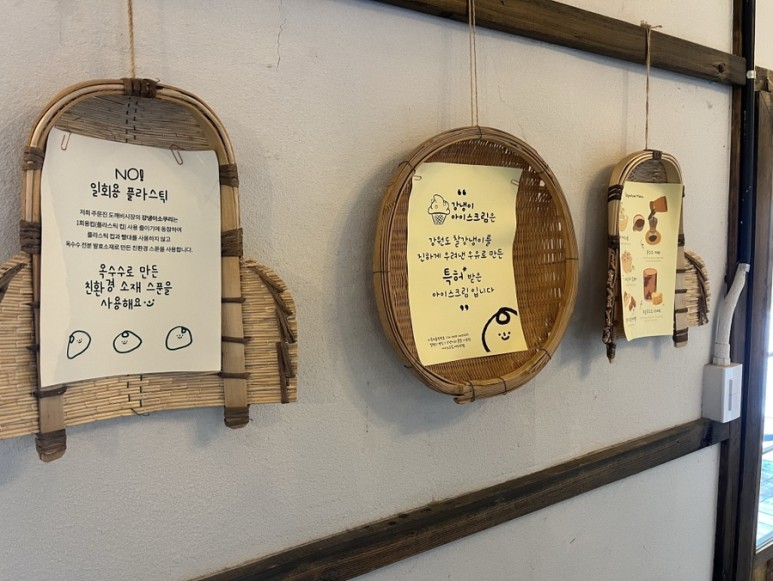 NO!
일회용 플라스틱
저희 주문진 도깨비시장의 강냉이소쿠리는
1회용컵(플라스틱 컵) 사용 줄이기에 동참하여
플라스틱 컵과 빨대를 사용하지 않고
옥수수 전분 발효소재로 만든 친환경 스푼을 사용합니다.
옥수수로 만든
친환경 소재 스푼을
사용해요
"
강냉이
아이스크림은
강원도 찰강냉이를
진하게 우려낸 우유로 만든
특허* 받은
아이스크림입니다
"